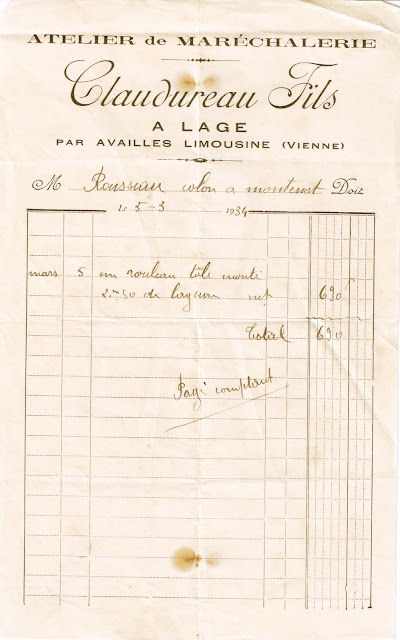 ATELIER de MARÉCHALERIE
Claudureau Fils
A LAGE
PAR AVAILLES LIMOUSINE (VIENNE)
M Rousseau colon a montenut Doit
Le 5-3 1934
mars 5 un rouleau tôle monté
2m50 de largeur net 690f
Total 690
Payé comptant